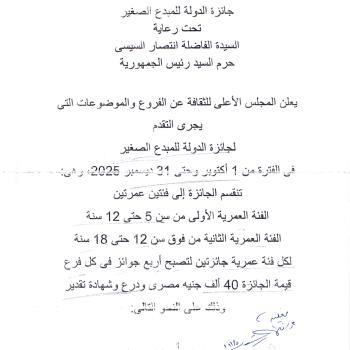 جائزة الدولة للمبدع الصغير
تحت رعاية
السيدة الفاضلة انتصار السيسى
حرم السيد رئيس الجمهورية
يعلن المجلس الأعلى للثقافة عن الفروع والموضوعات التى
يجرى التقدم
لجائزة الدولة للمبدع الصغير
فى الفترة من 1 أكتوبر وحتى 31 ديسمبر 2025، وهى:
تنقسم الجائزة إلى فئتين عمرتين
الفئة العمرية الأولى من سن 5 حتى 12 سنة
الفئة العمرية الثانية من فوق سن 12 حتى 18 سنة
لكل فئة عمرية جائزتين لتصبح أربع جوائز فى كل فرع
قيمة الجائزة 40 ألف جنيه مصرى ودرع وشهادة تقدير
وذلك على النحو التالى: